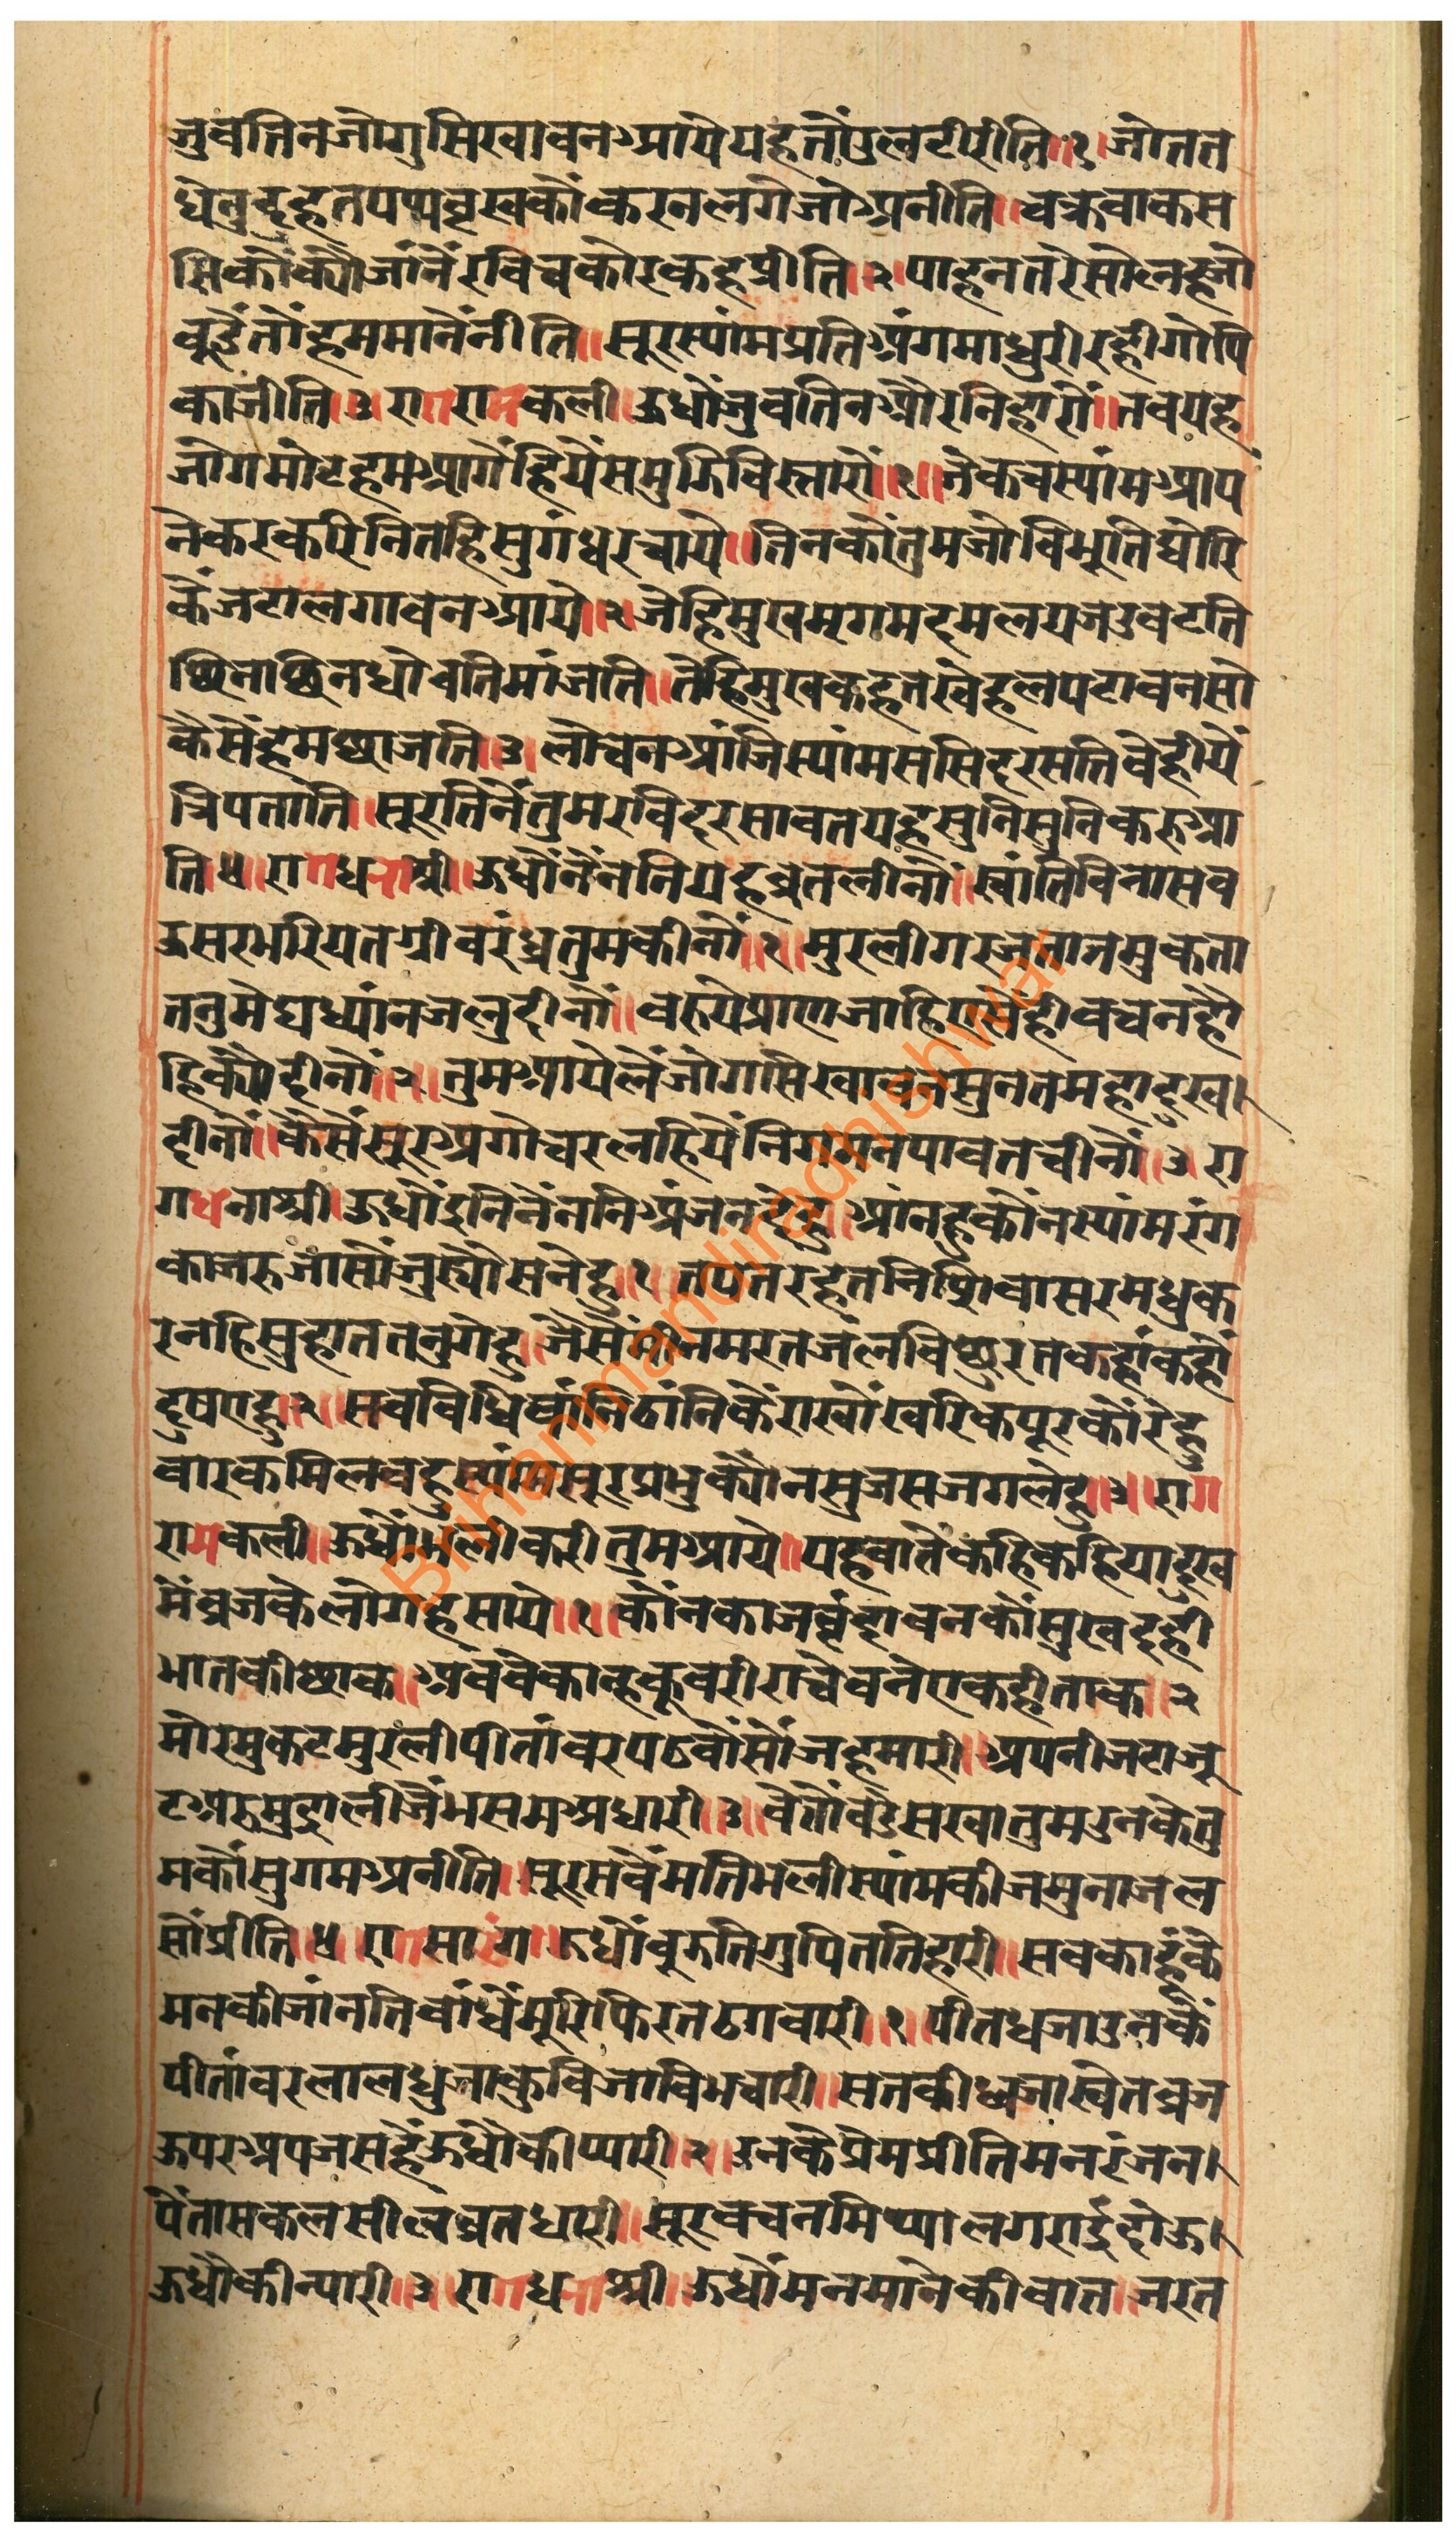 जुवतिनजोगुसिखावनआयेयहतौउलटीरीति॥१॥जोतत
धेनुदुहतपयवृखकौंकरनलगेजोअनीति॥चक्रवाकस
सिकौंक्यौजांनैंरविचकोरकहप्रीति॥२॥पाहनतरेसोलाहजो
बूडैंतौंहममानैंनीति॥सूरस्यांमप्रतिअंगमाधुरीरहीगोपि
काजीति॥३॥रागरामकली॥ऊधौंजुवतिनऔरनिहारौं॥तवयह
जोगमोटहमआगैंहियैंसमुझिविस्तारौं॥१॥जेकचस्यांमआपं
नेकरकरिनितहिसुगंधरचाये॥तिनकौंतुमजोविभूतिघोरि
कैंजटालगावनआये॥२॥जेहिमुखमृगमदमलयजउवटति
छिनाछिनधोवतिमांजति॥तेहिमुखकहतखेहलपटावनसो
कैसैंहमछाजति॥३॥लोचनआंजिस्यांमससिदरसतितवेहीयें
त्रिपताति॥सूरतिनैंतुमरविदरसावतयहसुनिसुनिकरुआ
ति॥४॥रागधनाश्री॥ऊधौंनैंननियहव्रतलीनौं॥स्वांतिविनासव
ऊसरभरियतग्रीवरंध्रतुमकीनौं॥१॥मुरलीगरजतानमुकता
तनुमेघध्यांनजलुदीनौं॥वरुयेप्राणजाहिऐसैंहीवचनहौ
हिक्यौहीनौं॥२॥तुमआयेलैंजोगसिखावनसुनतमहादुख।
दीनौं॥कैसैंसूरअगोचरलहियैंनिगमनपावतचीनौं॥३॥रा
गधनाश्री॥ऊधौंइनिनैंननिअंजनदेहु॥आंनहुकौंनस्यांमरंग
काजरुजासौंजुर्यौसनेहु॥१॥तपतरहतनिशिवासरमधुक
रनहिसुहाततनुगेहु॥जैसैंमीनमरतजलविछुरतकहांकहौं
दुषएहु॥२॥सवविधिवांनिठांनिकैंराखौंखरिकपूरकौंरेहु
वारकमिलवहुस्यांमसूरप्रभुक्यौनसुजसजगलेहु॥३॥राग
रामकली॥ऊधौंभलीकरीतुमआये॥यहवातेंकहिकहियादुख
मेंव्रजकेलोगहसाये॥१॥कौंनकाजवृंदावनकौंसुखदही
भातकीछाक॥अववेकान्हकूवरीराचेवनेएकहीताक॥२
मोरमुकटमुरलीपीतांवरपठवौंसौंजहमारी॥अपनीजटाजू
टअरुमुद्रालीजैंभसमअधारी॥३॥वेतौंवडेसखातुमउनकेतु
मकौंसुगमअनीति॥सूरसवैंमतिभलीस्यांमकीजमुनाजल
सौंप्रीति॥४॥रागसारंग॥ऊधौंवूझतिगुपिततिहारी॥सवकाहूके
मनकीजांनतिवांधेंमूरिफिरतठगवारी॥१॥पीतधजाउनकैं
पीतांवरलालधुजाकुविजाविभचारी॥सतकीध्वजास्वेतव्रज
ऊपरअपजसहैंऊधौकीप्यारी॥२॥उनकैप्रेमप्रीतिमनरंजन।
पैंतासकलसीलव्रतधारी॥सूरवचनमिथ्यालगराईदोऊ।
ऊधौकीन्यारी॥३॥रागधनाश्री॥ऊधौंमनमानेकीवात॥जरत